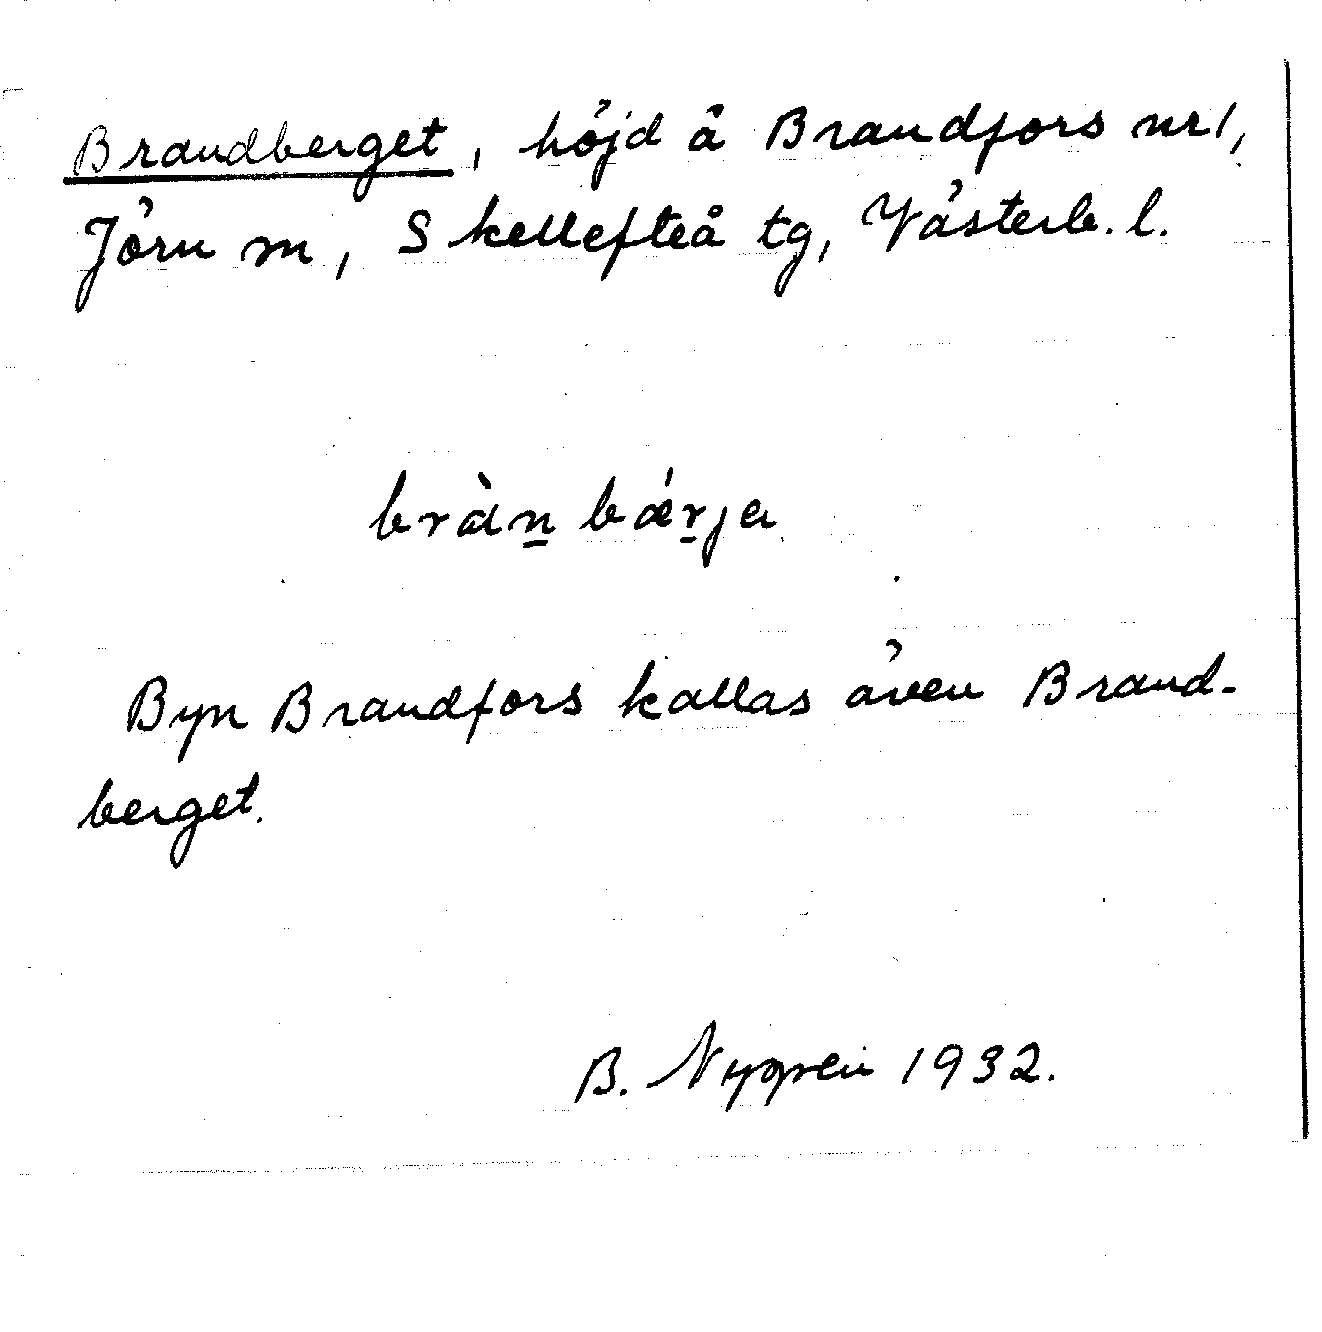 Brandberget, höjd å Brandfors nr 1,
Jörn sn, Skellefteå tg, Västerb. l.
bràn̲ bǽr̲ja
Byn Brandfors kallas även Brand-
berget.
B. Nygren 1932.